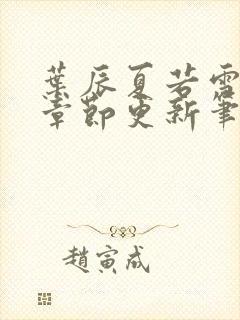 葉辰夏若雪
章節更新筆
趙寅成